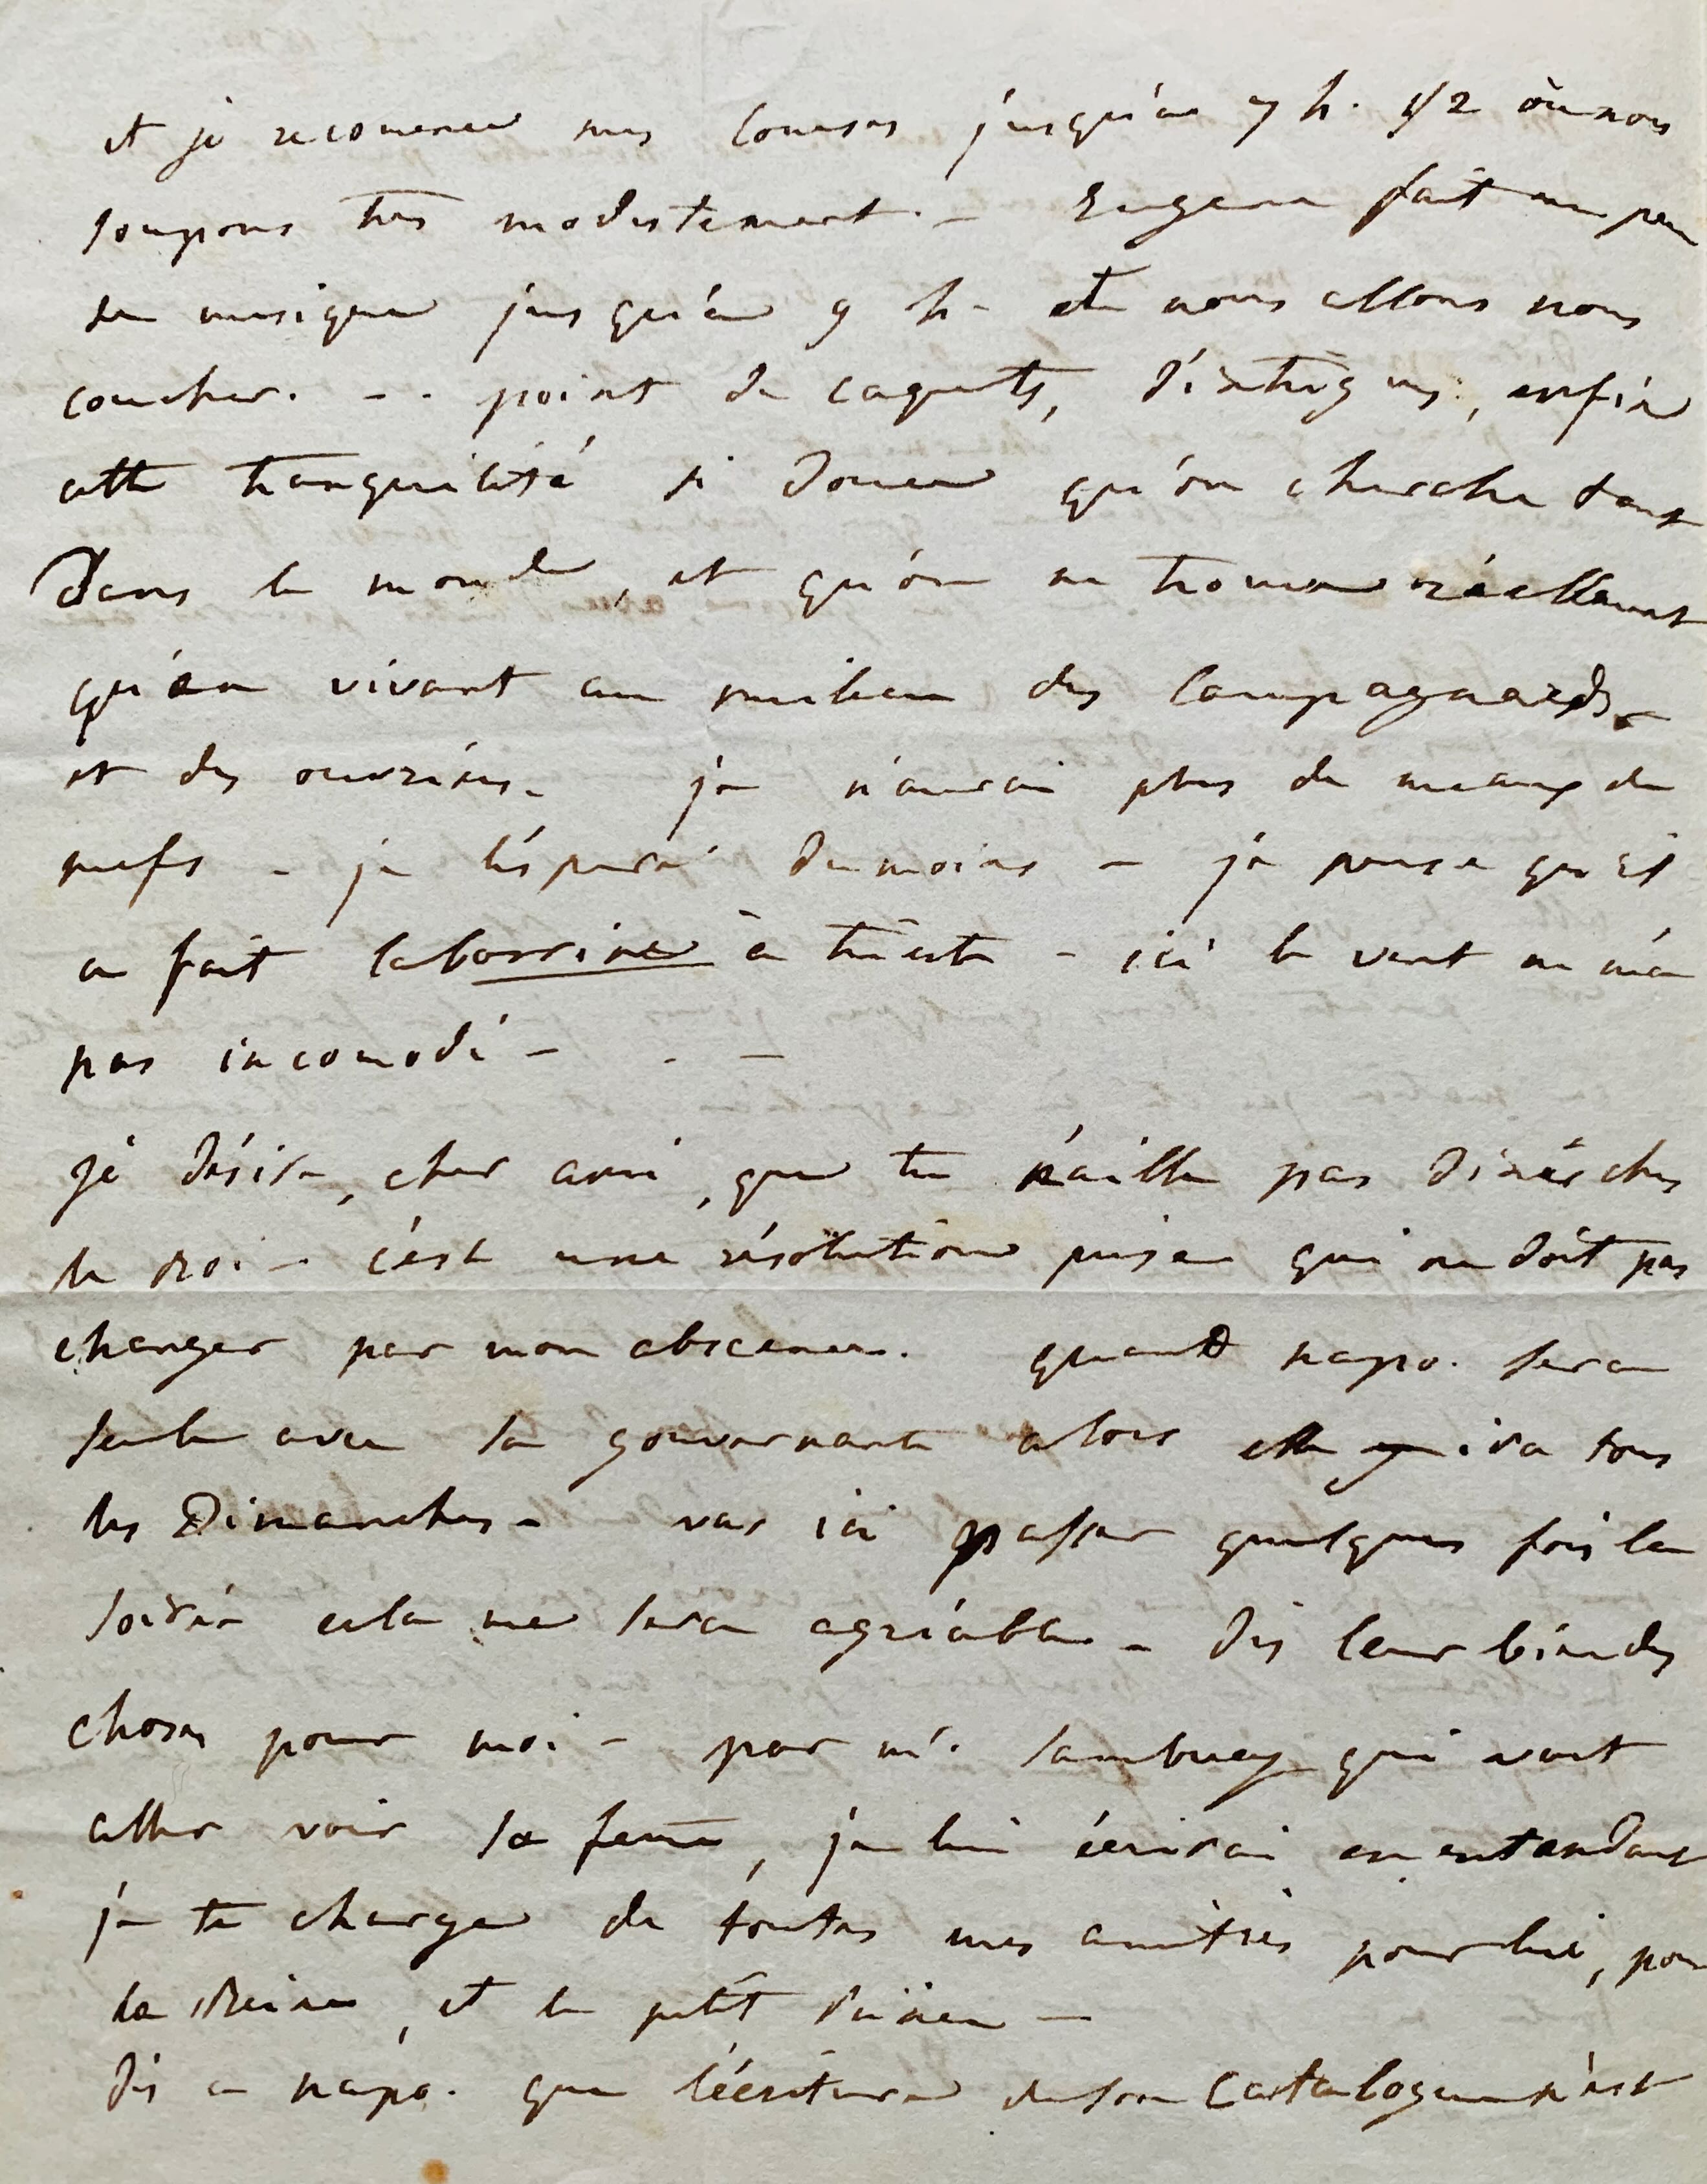 et je recomence mes courses jusqu'a 7 h. 1/2 ou nous
soupons très modestement. – Eugene fait un peu
de musique jusqu'à 9 h – et nous allons nous
coucher. – . point de caquets, d'intrigues, enfin
cette tranquilité si douce qu'on cherche tant
Dans le monde, et qu'on ne trouve réellement
qu'en vivant au milieu des campagnards
et des ouvriers. je n'aurai plus de meaux de
nefs – je l'éspere dumoins – je pense qu'il
a fait la borrine à trieste – ici le vent ne m'a
pas incomodé – . –
je désire, cher ami, que tu n'aille pas diner chez
le roi – c'est une résolution prise qui ne doit pas
changer par mon abscence. quand napo. sera
seule avec sa gouvernante alors elle y ira tous
les Dimanches – vas ici passer quelques fois la
soirée cela me sera agréable – dis leur bien des
choses pour moi – par mr. Sambucy qui veut
aller voir sa feme, je lui écrirai en entendant
je te charge de toutes mes amitiés pour lui, pour
la Reine, et le petit
dis a napo. que l'écriture de son Catalogue n'est